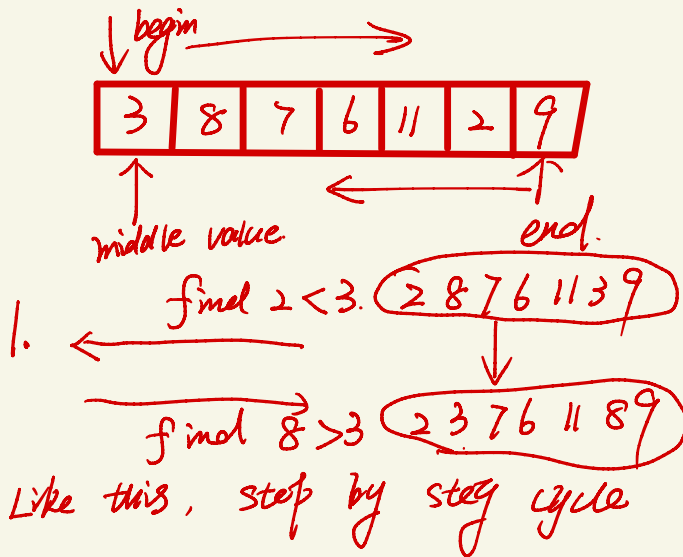 begin
3 8 7 6 11 2 9
middle value
end.
find 2 < 3. 2 8 7 6 11 3 9
1.
find 8 > 3 2 3 7 6 11 8 9
Like this, step by steg cycle